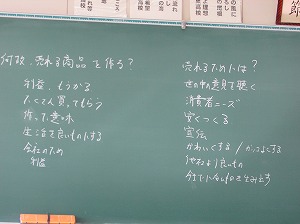 何故、売れる商品を作る?
利益、もうかる
たくさん買ってもらう
作った意味
生活を良いものにする
会社のため
利益
売れるためには?
世の中の意見を聴く
消費者ニーズ
安くつくる
宣伝
かわいくする/かっこよくする
他社より良いもの
今までにないものを生み出す